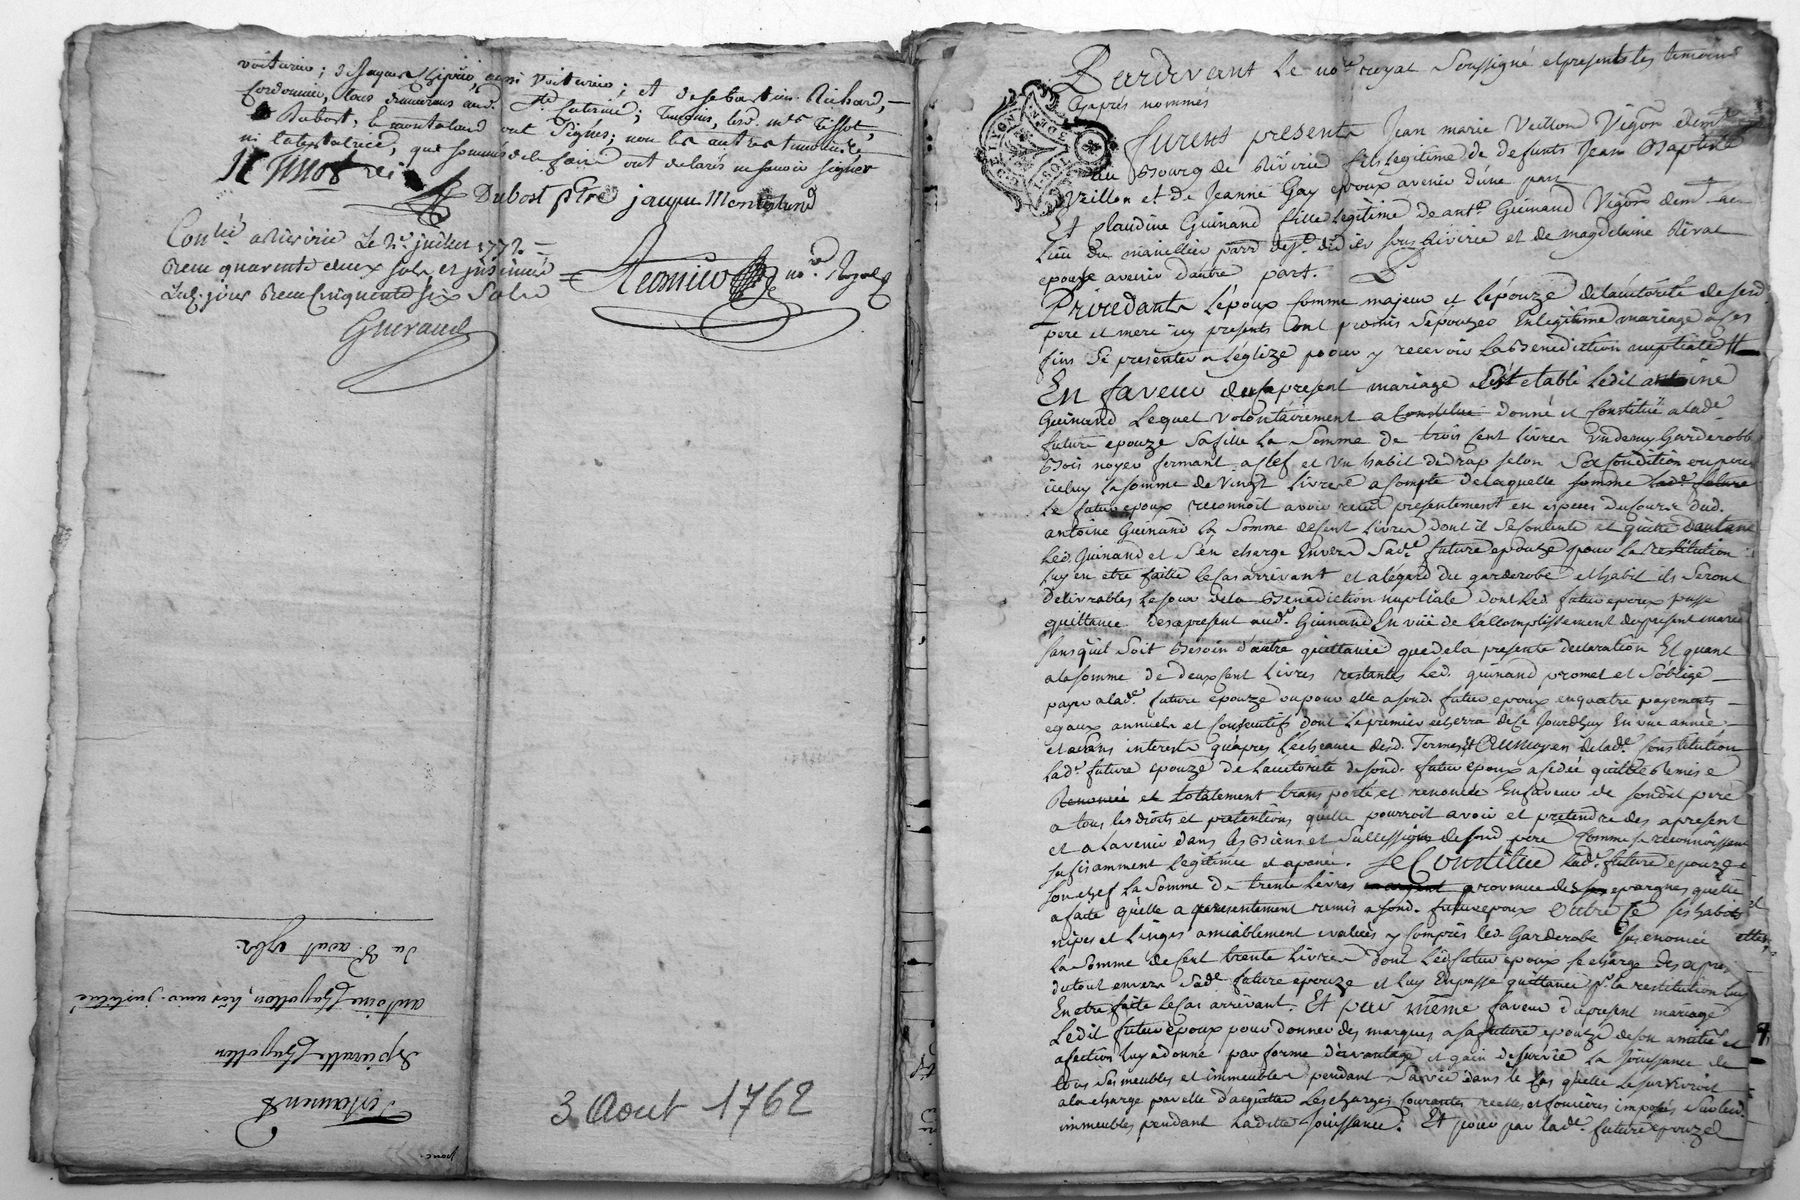 voiturier; de Jaques Ripiri, aussi voiturier; et de Sebastien Richard,
Cordonnier, tous demeurans aud. Ste Caterine; temoins, lesd. mes Tissot,
Dubost, le montaland ont signés; non les autres temoins ni
ni la testatrice, que sommés de le faire ont declarés ne savoir signer
Dubost ptre jaque Montaland
Conllé a Riverie Le 3e juillet 1772
Receu quarente deux sols et insinué
Led. jour Receu Cinquante six Sols
no.re Royal
Guiraud
pardevant Le nore royal Soussigné et presents les temoins
Cy aprés nommés
furent presents Jean marie Veillon Vigon demt
au Bourg de Riverie fils legitime de defunts Jean Baptiste
Vzillon et de Jeanne Gay epoux avenir d'une part
Et Claudine Guinand fille legitime de ante Guinand Vigon demt au
Lieu du manellier parr de st didier sous Riverie et de magdelaine Rivat
epouse avenir dautre part.
Procedants L'époux Comme majeur et L'épouze de lautorité de sesd.
pere et mere icy presents ont promis sépouzer En legitime mariage a ces
fins se presenter a L'églize pour y recevoir La Benediction nuptiale
En faveur du present mariage s'est etabli Ledit antoine
Guinand Lequel volontairement a Constitué donné et Constitué a lade
future epouze sa fille La somme de trois Cent Livres un demy Garderobbe
Bois noyer fermant a clef et un habit de drap selon sa Condition ou pour
iceluy la somme de vingt Livres a Compte de laquelle somme lade. future
Le futur epoux reconnoit avoir receu presentement en especes du Cours dud.
antoine Guinand la somme de Cent Livres dont il se contente et quitte d'autant
led. Guinand et s'en charge Envers sade future epouze pour La restitution
Luy en etre faitte le Cas arrivant et a légard du garderobe et habit ils Seront
Délivrables Le jour de la Benediction nuptiale dont led. futur epoux passe
quittance des a present aud. Guinand En vüe de L'accomplissement du present mariage
sans qu'il soit Besoin d'autre quittance que de la presente declaration Et quant
a la somme de deux Cent Livres restantes led. guinand promet et s'oblige
payer a lade future epouze ou pour elle a sond. futur epoux en quatre payements
egaux annuels et Consecutifs dont le premier echerra de Ce Jourdhuy En une année
et a sans interests qu'aprés l'écheance desd. Termes Et Au moyen de lade. Constitution
lade future epouze de l'autorité de sond. futur epoux a cedé quitté Remis et
Renoncé et totalement transporté et renoncé En faveur de sondit pere
a tous les droits et pretentions quelle pourroit avoir et pretendre des a present
et a Lavenir dans les Biens et successions de sond pere Comme se reconnoissant
suffisamment Legitimée et apanée. Se Constitue lade future epouze de
son chef la Somme de trente Livres provenue des epargnes quelle
a fait qu'elle a presentement remis a sond. futur epoux Outre Ce ses habits
nipes et Linges amiablement evalués y Compris led. Garderobe sus enoncé
La somme de Cent trente Livres Dont Ledit futur epoux se charge des apresent
du tout envers sade future epouze et Luy En passe quittance pr la restitution Luy
En etre faite le Cas arrivant. Et par même faveur d'apresent mariage
Ledit futur epoux pour donner des marques a sa future epouze de son amitié et
afection Luy a donné par forme d'avantage et gain de survie La Jouissance de
tous ses meubles et immeubles pendant sa vie dans le Cas quelle le survivroit
a la charge par elle d'aquitter les charges Courantes reelles et foncières imposés sur led.
immeubles pendant Ladite Jouissance. Et pour par lade. future epouze
Testament
antoine
du 3. aout 1762.
3 Aout 1762